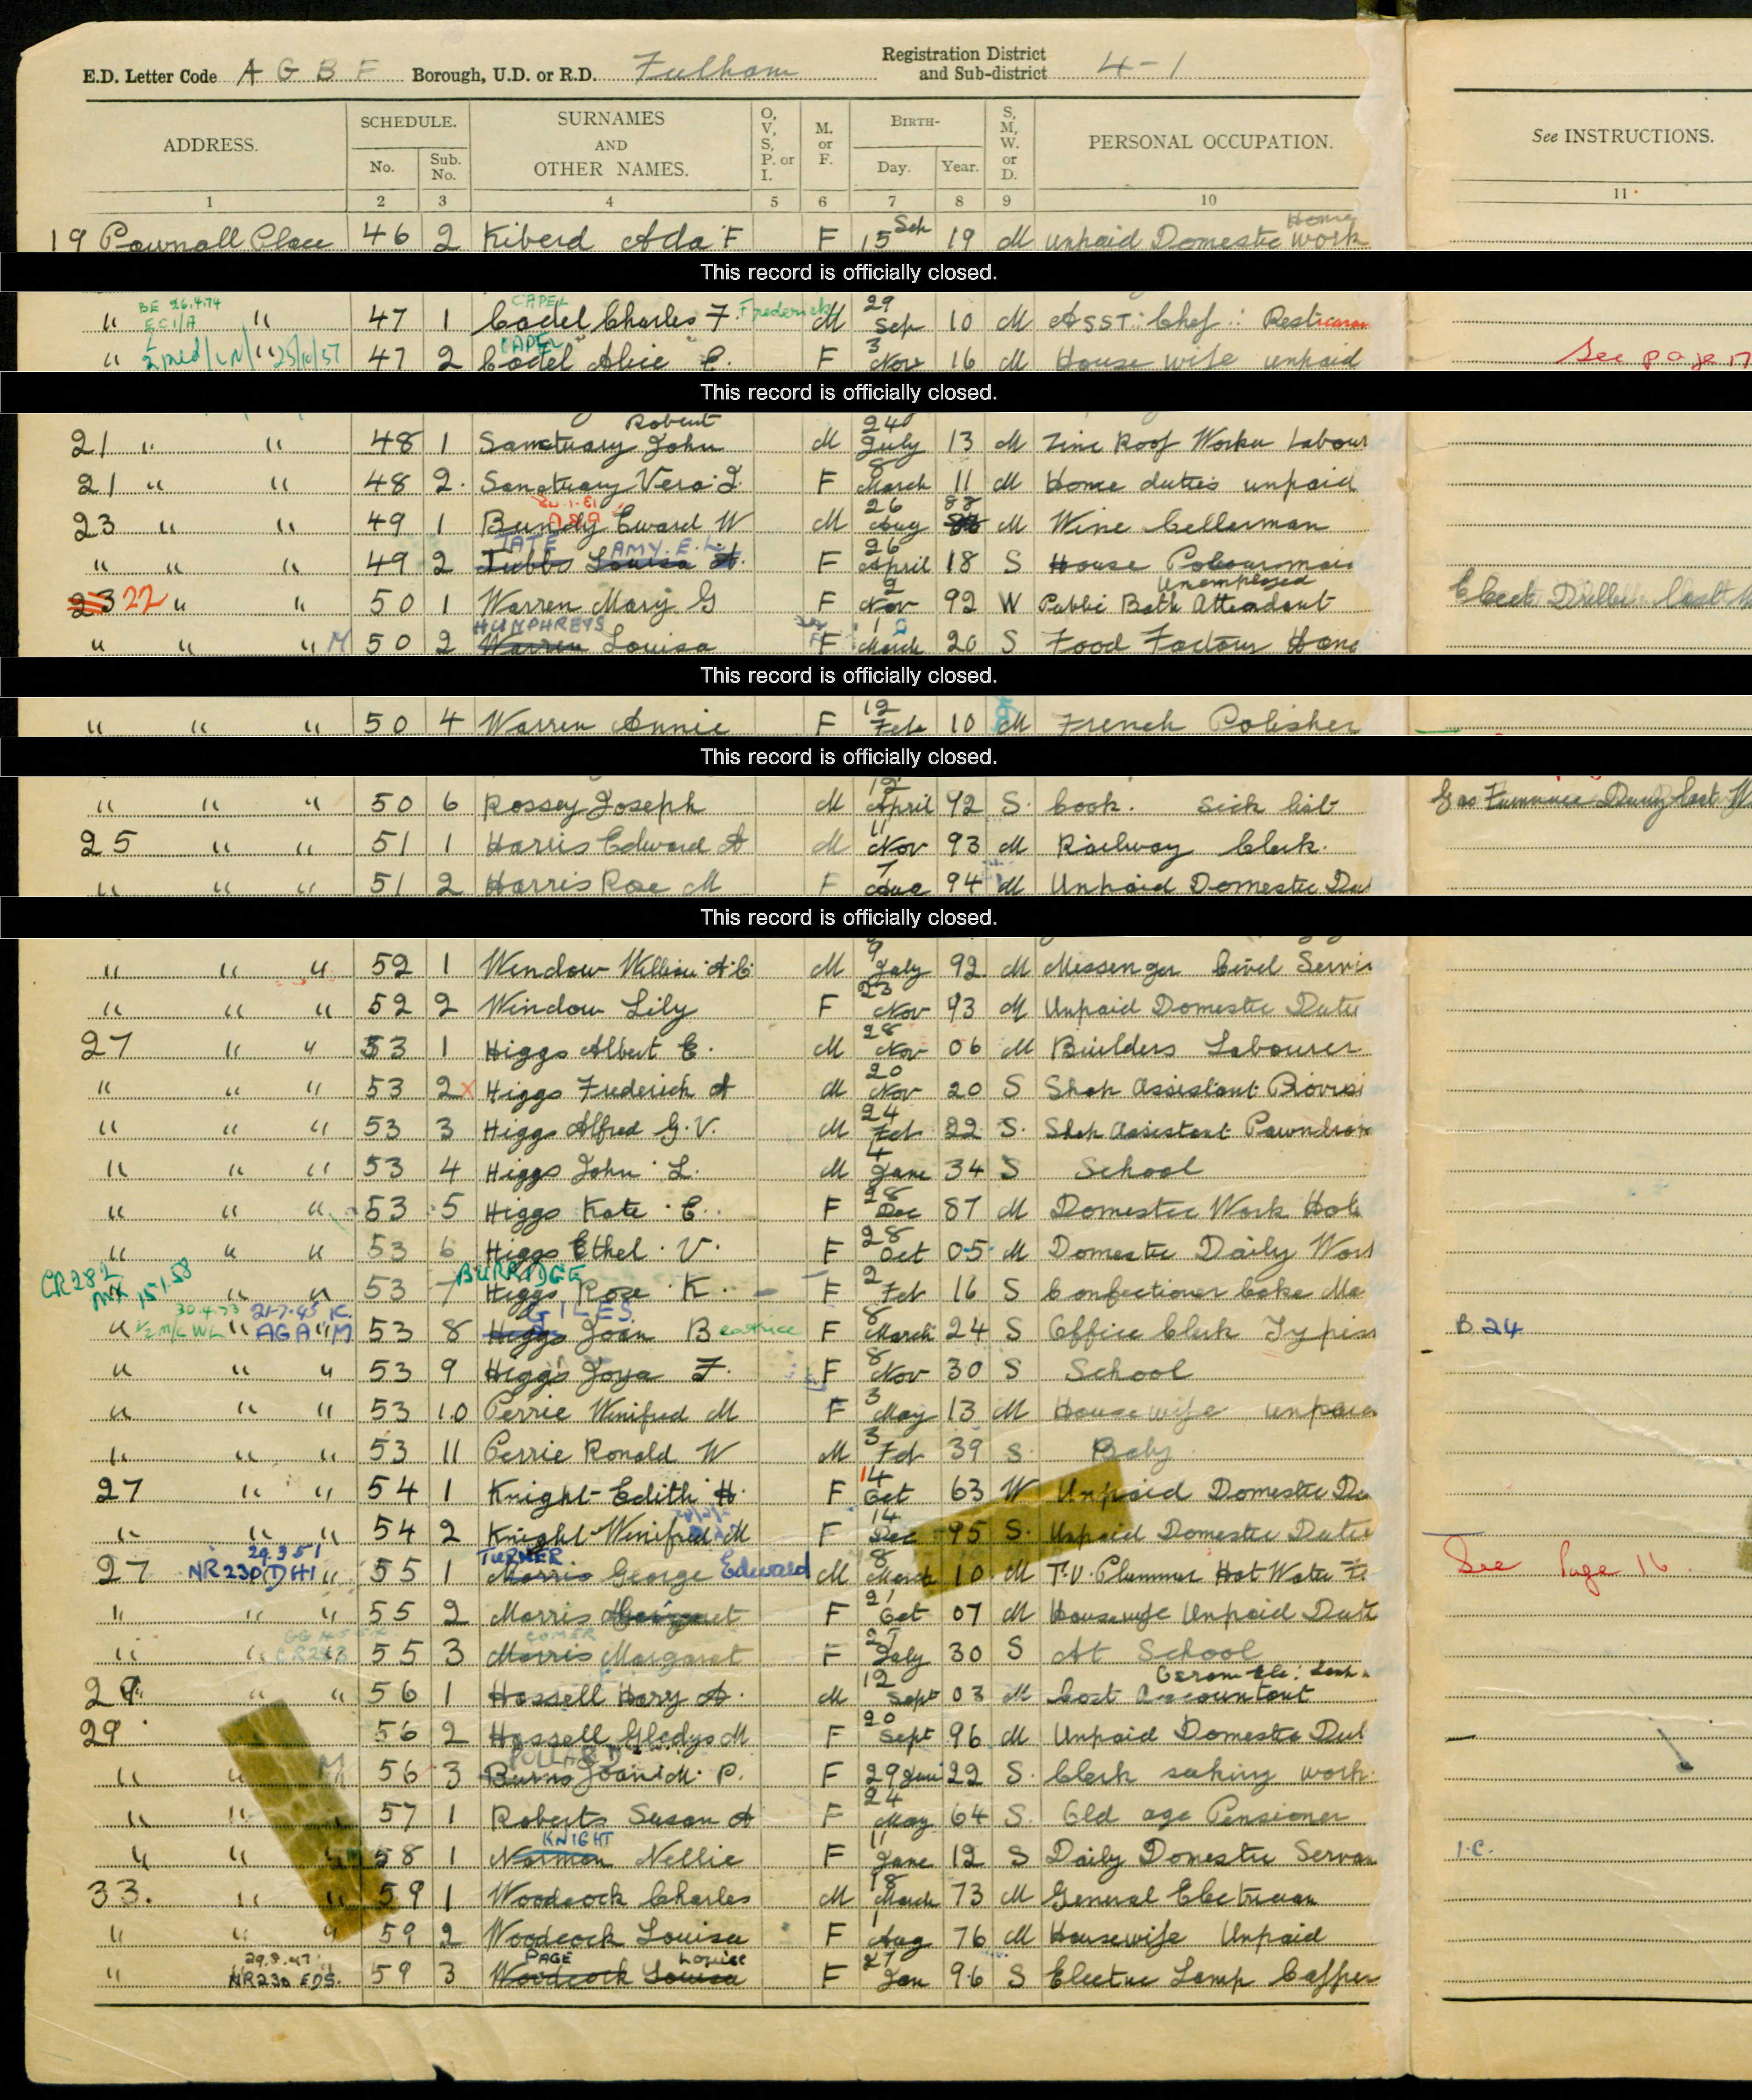 E.D. Letter Code A G B F Borough, U.D. or R.D. Fulham Registration District and Sub-district 4-1
ADDRESS. SCHEDULE. No. Sub. No. SURNAMES AND OTHER NAMES. O, V, S, P. or I. M. or F. BIRTH- Day. Year. S, M, W. or D. PERSONAL OCCUPATION. See INSTRUCTIONS.
1 2 3 4 5 6 7 8 9 10 11
19 Pownall Place 46 2 Kiberd Ada F F 15 Sep 19 M unpaid Domestic Home work
This record is officially closed.
BE 26.4.74 EC1/A
" " 47 1 CAPEL Charles F. Frederick M 29 Sep 10 M ASST: Chef :
" 25/10/57 47 2 CAPEL Alice E. F 3 Nov 16 M House wife unpaid See page 17
This record is officially closed.
21 " " 48 1 Sanctuary John Robert M 24 July 13 M Zinc Roof Worker Labour
21 " " 48 2. Sanctuary Vera I. F 8 March 11 M Home duties unpaid
23 " " 49 1 Bundy Edward W M 26 Aug 88 M Wine Cellerman
" " " 49 2 TATE Tubbs Louisa A. AMY. E. L. F 26 April 18 S House
23 22 " " 50 1 Warren Mary G F 9 Nov 92 W Public Bath Attendant Unemployed
" " " M 50 2 HUMPHREYS Warren Louisa F 1 March 20 S Food Factory Hand
This record is officially closed.
" " " 50 4 Warren Annie F 12 Feb 10 M French Polisher
This record is officially closed.
" " " 50 6 Rossey Joseph M 12 April 92 S. Cook. Sick list
25 " " 51 1 Harris Edward A M 11 Nov 93 M Railway Clerk.
" " " 51 2 Harris Rose M F 7 Aug 94 M Unpaid Domestic Dut
This record is officially closed.
" " " 52 1 Window William A.C. M 9 July 92 M Messenger Civil Servi
" " " 52 2 Window Lily F 23 Nov 93 M Unpaid Domestic Dutie
27 " " 53 1 Higgs Albert E. M 28 Nov 06 M Builders Labourer
" " " 53 2 x Higgs Frederick A M 20 Nov 20 S Shop Assistant Provisi
" " " 53 3 Higgs Alfred G.V. M 24 Feb 22 S. Shop Assistant Pawnbrok
" " " 53 4 Higgs John L. M 4 June 34 S School
" " " 53 5 Higgs Kate E. F 28 Dec 87 M Domestic Work Hote
" " " 53 6 Higgs Ethel V. F 28 Oct 05 M Domestic Daily Work
CR282 " " 53 7 BURRIDGE Higgs Rose K. F 2 Feb 16 S Confectioner Cake Ma
30.4.73 21.7.45
" " AGA "M 53 8 GILES Higgs Joan Beatrice F 8 March 24 S Office Clerk Typis B 24
" " " 53 9 Higgs Joya F. F 8 Nov 30 S School
" " " 53 10 Perrie Winifred M F 3 May 13 M Housewife unpaid
" " " 53 11 Perrie Ronald W M 3 Feb 39 S Baby
27 " " 54 1 Knight Edith H. F 14 Oct 63 W Unpaid Domestic Du
" " " 54 2 Knight Winifred M F 14 Dec 95 S. Unpaid Domestic Dutie
29.3.51
27 NR230 " 55 1 TURNER Morris George Edward M 8 March 10 M T.V. Plummer Hot Water See Page 16
" " " 55 2 Morris Margaret F 21 Oct 07 M Housewife Unpaid Duti
" " CR283 55 3 COMER Morris Margaret F 25 July 30 S At School
29 " " 56 1 Hassell Harry A. M 12 Sept 03 M Cost Accountant
29 56 2 Hassell Gladys M F 20 Sept 96 M Unpaid Domestic Dut
" " M 56 3 POLLARD Burns Joan M. P. F 29 Jun 22 S. Clerk seeking work.
" " 57 1 Roberts Susan A F 24 May 64 S. Old age Pensioner
" " " 58 1 KNIGHT Norman Nellie F 11 June 12 S Daily Domestic Servan I.C.
33. " " 59 1 Woodcock Charles M 18 March 73 M General Electrician
" " " 59 2 Woodcock Louisa F 1 Aug 76 M Housewife Unpaid
29.8.47
" NR230 EDS. 59 3 PAGE Louise Woodcock Louisa F 27 Jan 96 S Electric Lamp Capper